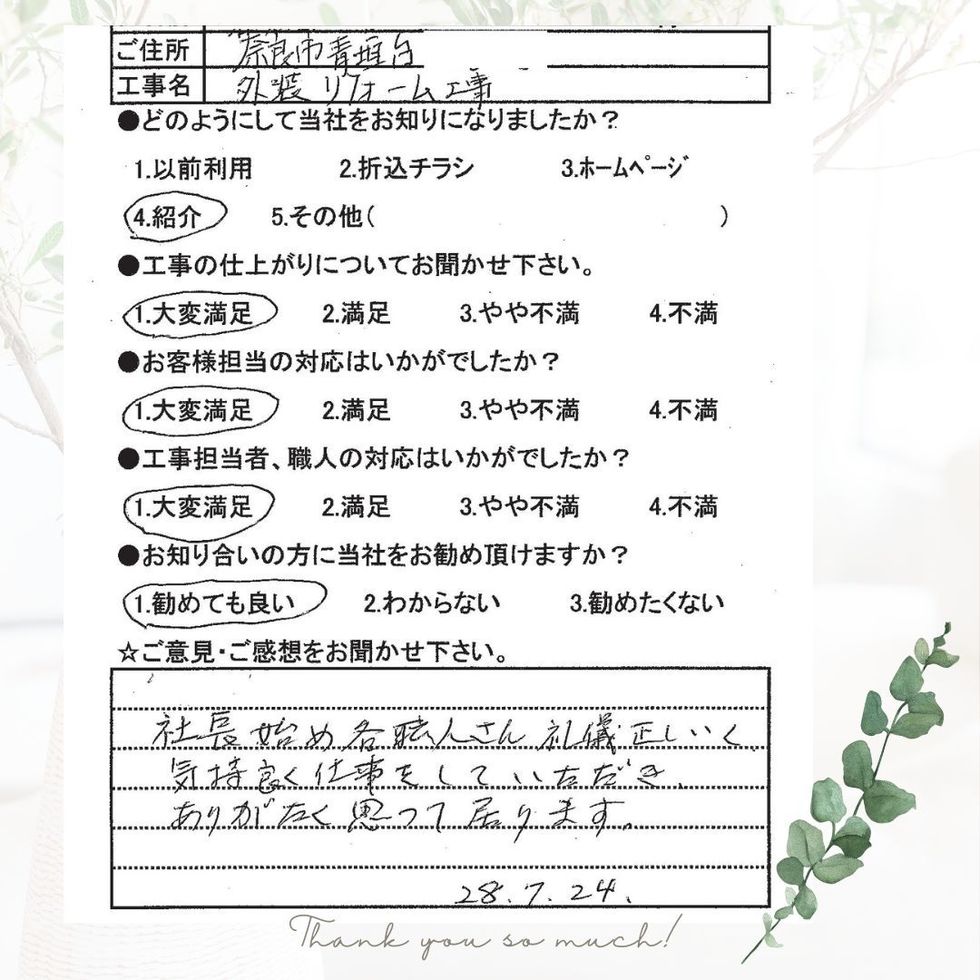 ご住所 奈良市青垣台
工事名 外装リフォーム工事
●どのようにして当社をお知りになりましたか？
1.以前利用 2.折込チラシ 3.ホームページ
4.紹介 5.その他( )
●工事の仕上がりについてお聞かせ下さい。
1.大変満足 2.満足 3.やや不満 4.不満
●お客様担当の対応はいかがでしたか？
1.大変満足 2.満足 3.やや不満 4.不満
●工事担当者、職人の対応はいかがでしたか？
1.大変満足 2.満足 3.やや不満 4.不満
●お知り合いの方に当社をお勧め頂けますか？
1.勧めても良い 2.わからない 3.勧めたくない
☆ご意見・ご感想をお聞かせ下さい。
社長始め各職人さん礼儀正しいく、
気持良く仕事をしていただき、
ありがたく思って居ります。
28.7.24.
Thank you so much!